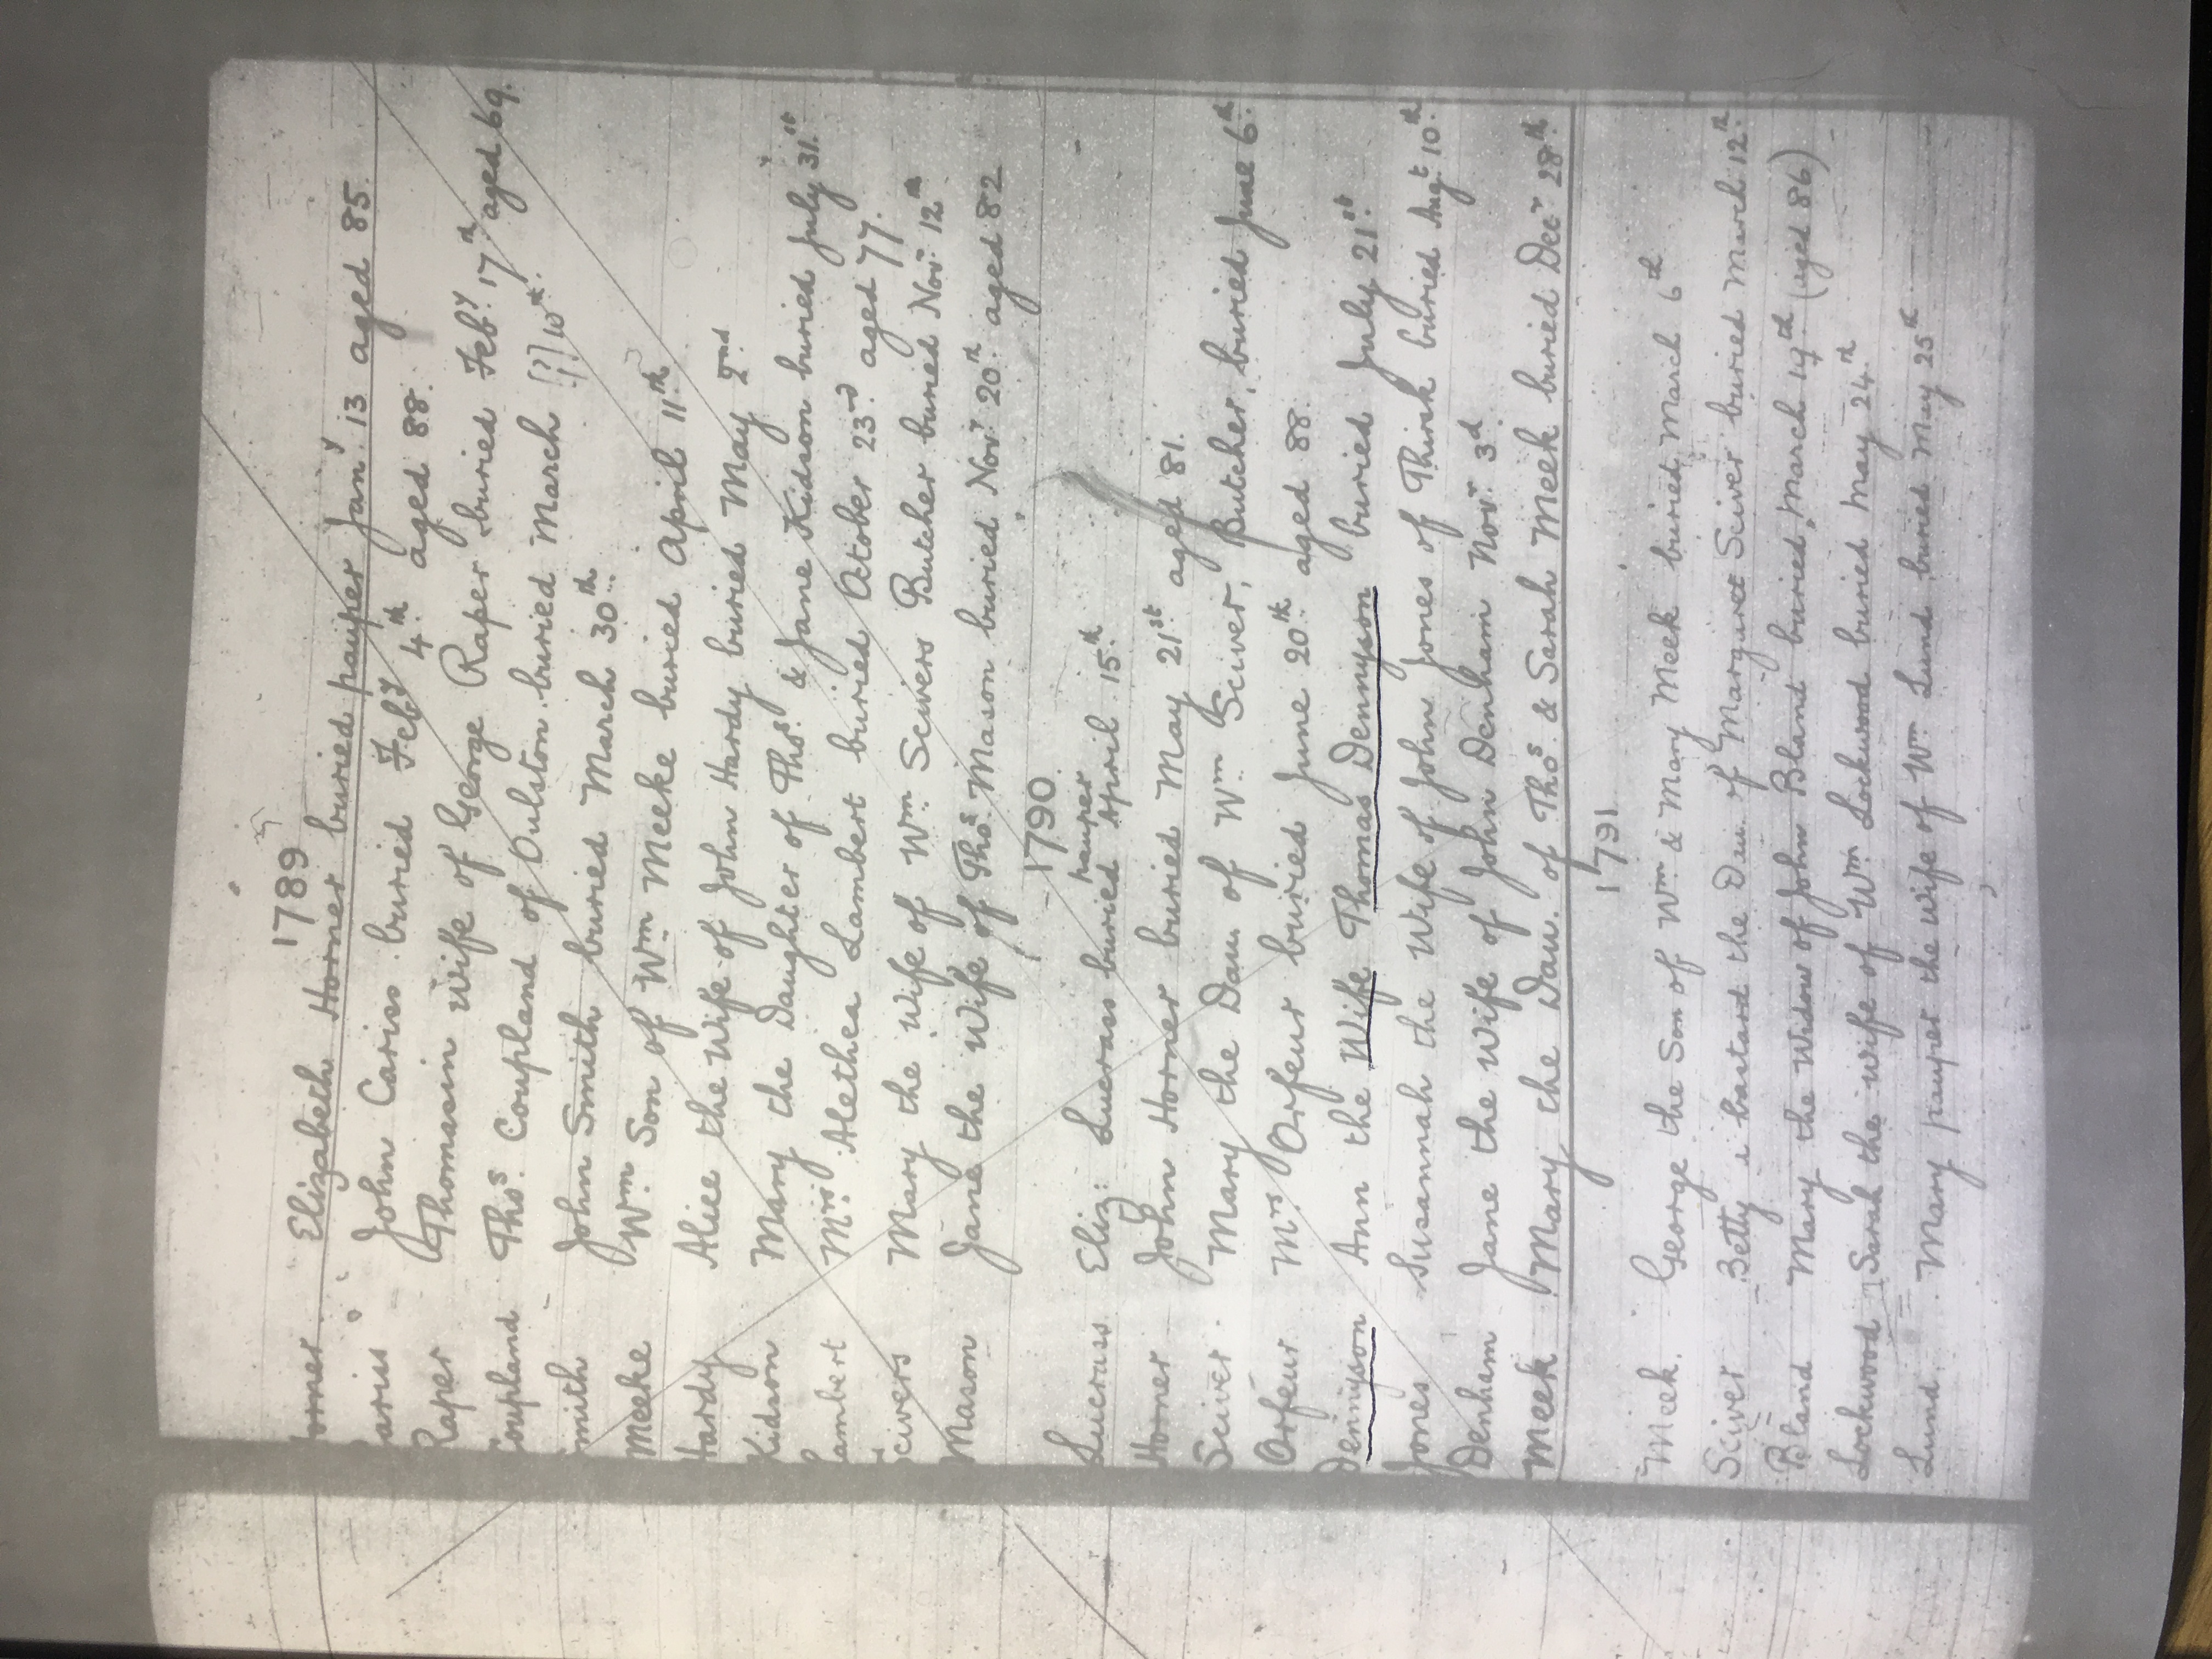 1789
orner Elizabeth Horner buried pauper Jan.y 13 aged 85.
aris John Cariss buried Feb.y 4.th aged 88.
Raper Thomasin Wife of George Raper buried Feb.y 17.th aged 69.
oupland Tho.s Coupland of Oulston buried March [?] 10.th
mith John Smith buried March 30.th
Meeke W.m Son of W.m Meeke buried April 11.th
Hardy Alice the Wife of John Hardy buried May 2.nd
Kidson Mary the Daughter of Tho.s & Jane Kidson buried July 31.st
ambert M.rs Alethea Lambert buried October 23.rd aged 77.
Scivers Mary the Wife of W.m Scivers Butcher buried Nov.r 12.th
Mason Jane the Wife of Tho.s Mason buried Nov.r 20.th aged 82
1790
pauper
Lucrass Eliz: Lucrass buried April 15.th
Horner John Horner buried May 21.st aged 81.
Sciver Mary the Dau. of W.m Sciver, Butcher, buried June 6.th
Orfeur M.rs Orfeur buried June 20.th aged 88.
Dennyson Ann the Wife Thomas Dennyson buried July 21.st
Jones Susannah the Wife of John Jones of Thirsk buried Aug.t 10.th
Denham Jane the Wife of John Denham Nov.r 3.d
Meek Mary the Dau. of Tho.s & Sarah Meek buried Dec.r 28.th
1791
Meek. George the Son of W.m & Mary Meek buried March 6.th
Sciver Betty a bastard the Dau. of Margaret Sciver buried March 12.th
Bland Mary the Widow of John Bland buried March 19.th (aged 86)
Lockwood Sarah the wife of W.m Lockwood buried May 24.th
Lund. Mary pauper the wife of W.m Lund buried May 25.th